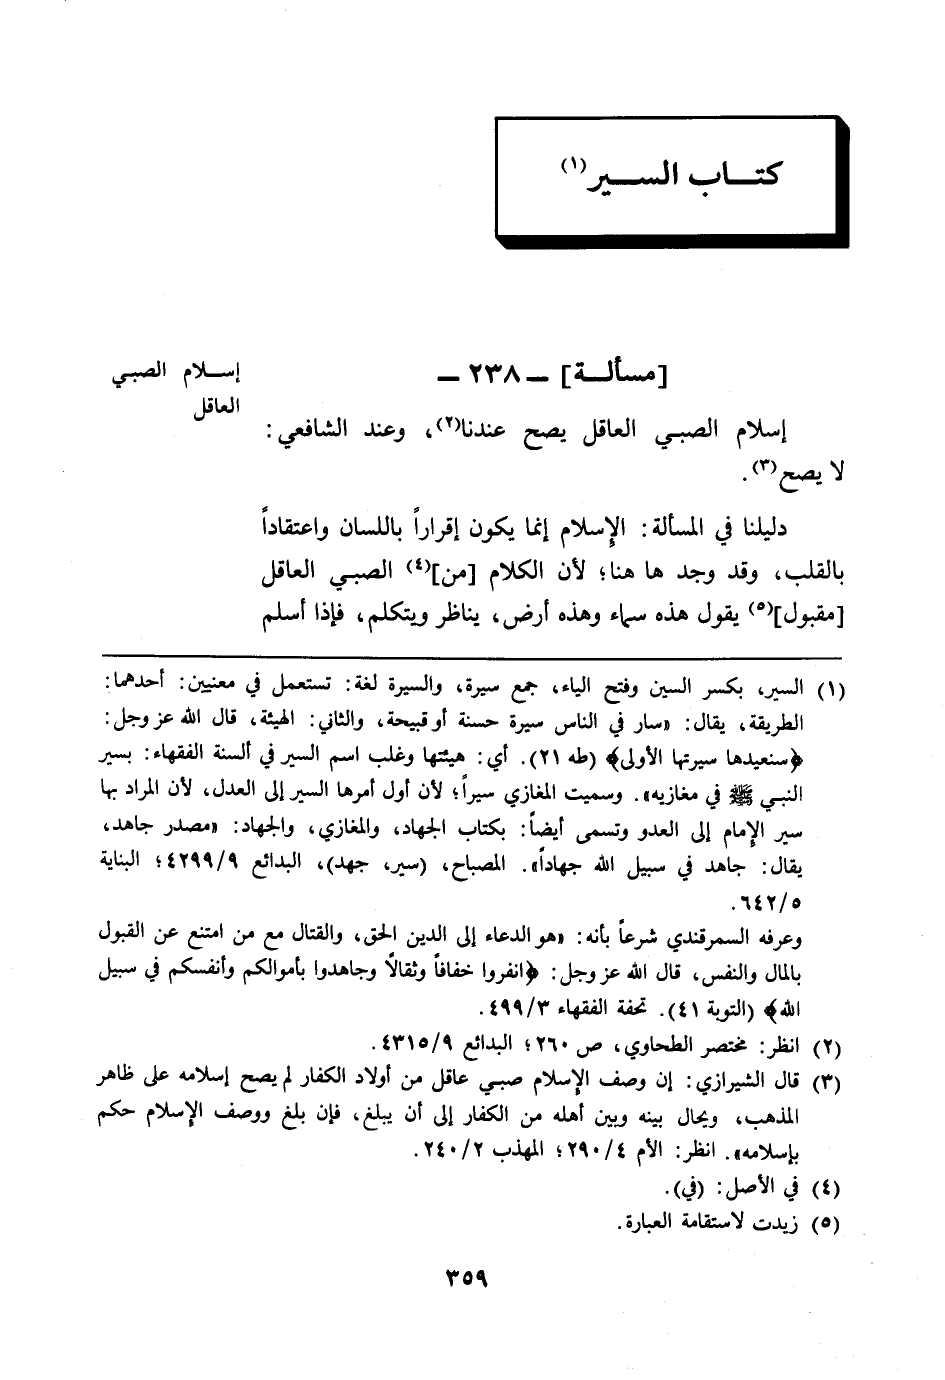 كتـــاب الســـير(١)
[مسألـــة] ــ ٢٣٨ ــ
إســـلام الصبـي
العاقل
إسلام الصبـي العاقل يصح عندنا(٢)، وعند الشافعي:
لا يصح(٣).
دليلنا في المسألة: الإسلام إنما يكون إقراراً باللسان واعتقاداً
بالقلب، وقد وجد ها هنا؛ لأن الكلام [من](٤) الصبـي العاقل
[مقبول](٥) يقول هذه سماء وهذه أرض، يناظر ويتكلم، فإذا أسلم
(١) السير، بكسر السين وفتح الياء، جمع سيرة، والسيرة لغة: تستعمل في معنيين: أحدهما:
الطريقة، يقال: «سار في الناس سيرة حسنة أو قبيحة، والثاني: الهيئة، قال الله عز وجل:
﴿سنعيدها سيرتها الأولى﴾ (طه ٢١). أي: هيئتها وغلب اسم السير في ألسنة الفقهاء: بسير
النبـي ﷺ في مغازيه». وسميت المغازي سيراً؛ لأن أول أمرها السير إلى العدل، لأن المراد بها
سير الإمام إلى العدو وتسمى أيضاً: بكتاب الجهاد، والمغازي، والجهاد: «مصدر جاهد،
يقال: جاهد في سبيل الله جهاداً». المصباح، (سير، جهد)، البدائع ٤٢٩٩/٩؛ البناية
٦٤٢/٥.
وعرفه السمرقندي شرعاً بأنه: «هو الدعاء إلى الدين الحق، والقتال مع من امتنع عن القبول
بالمال والنفس، قال الله عز وجل: ﴿انفروا خفافاً وثقالًا وجاهدوا بأموالكم وأنفسكم في سبيل
الله﴾ (التوبة ٤١). تحفة الفقهاء ٤٩٩/٣.
(٢) انظر: مختصر الطحاوي، ص ٢٦٠؛ البدائع ٤٣١٥/٩.
(٣) قال الشيرازي: إن وصف الإسلام صبـي عاقل من أولاد الكفار لم يصح إسلامه على ظاهر
المذهب، ويحال بينه وبين أهله من الكفار إلى أن يبلغ، فإن بلغ ووصف الإسلام حكم
بإسلامه». انظر: الأم ٢٩٠/٤؛ المهذب ٢٤٠/٢.
(٤) في الأصل: (في).
(٥) زيدت لاستقامة العبارة.
٣٥٩